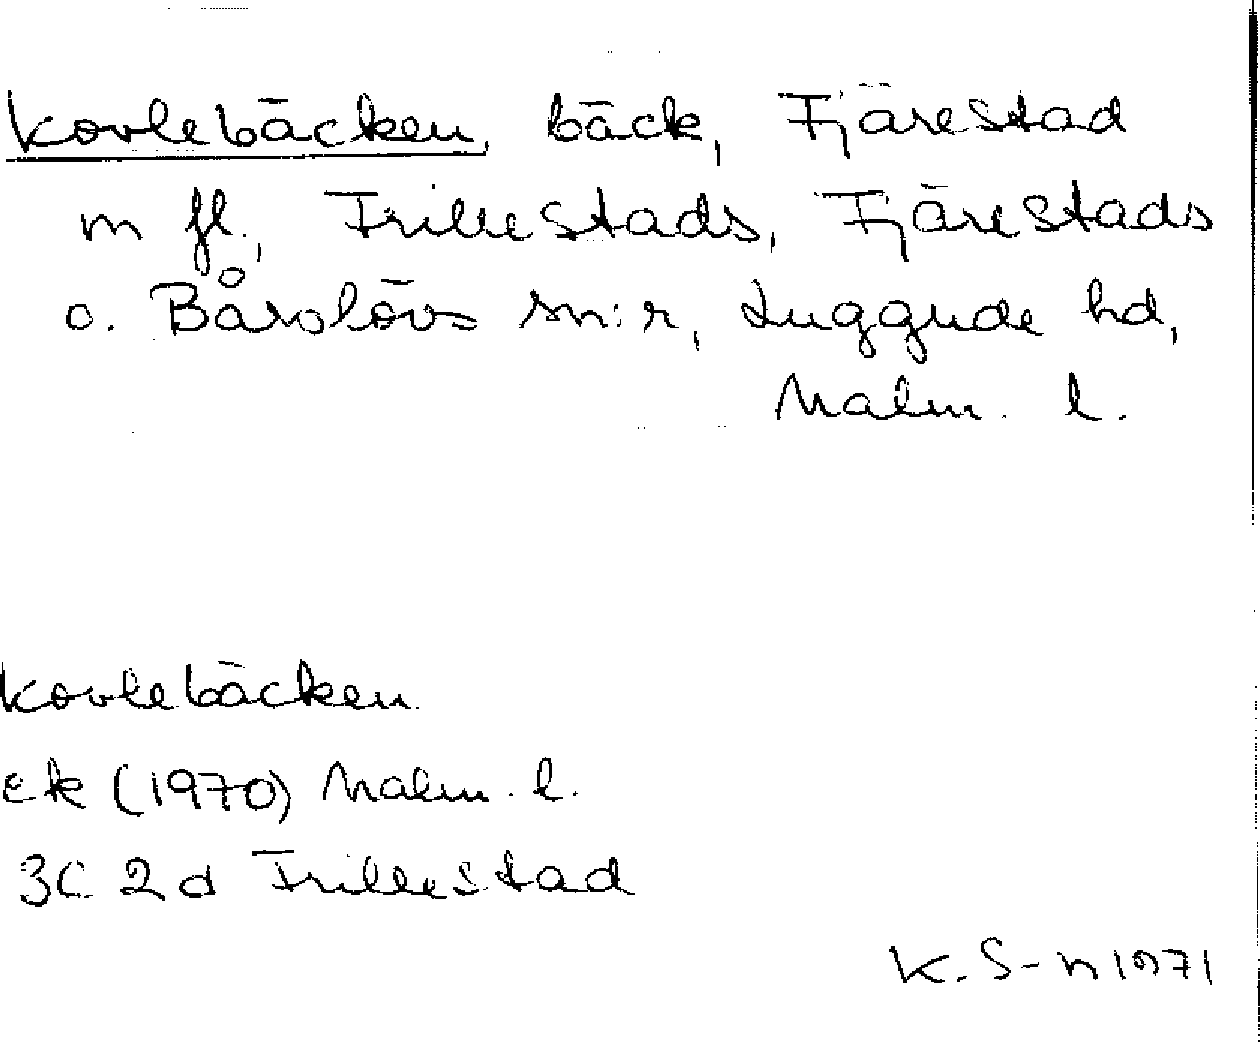 Kovlebäcken, bäck, Fjärestad
m fl., Frillestads, Fjärestads
o. Bårslövs sn:r, Luggude hd,
Malm. l.
Kovlebäcken
ek (1970) Malm. l.
3C 2d Frillestad
K. S-n 1971